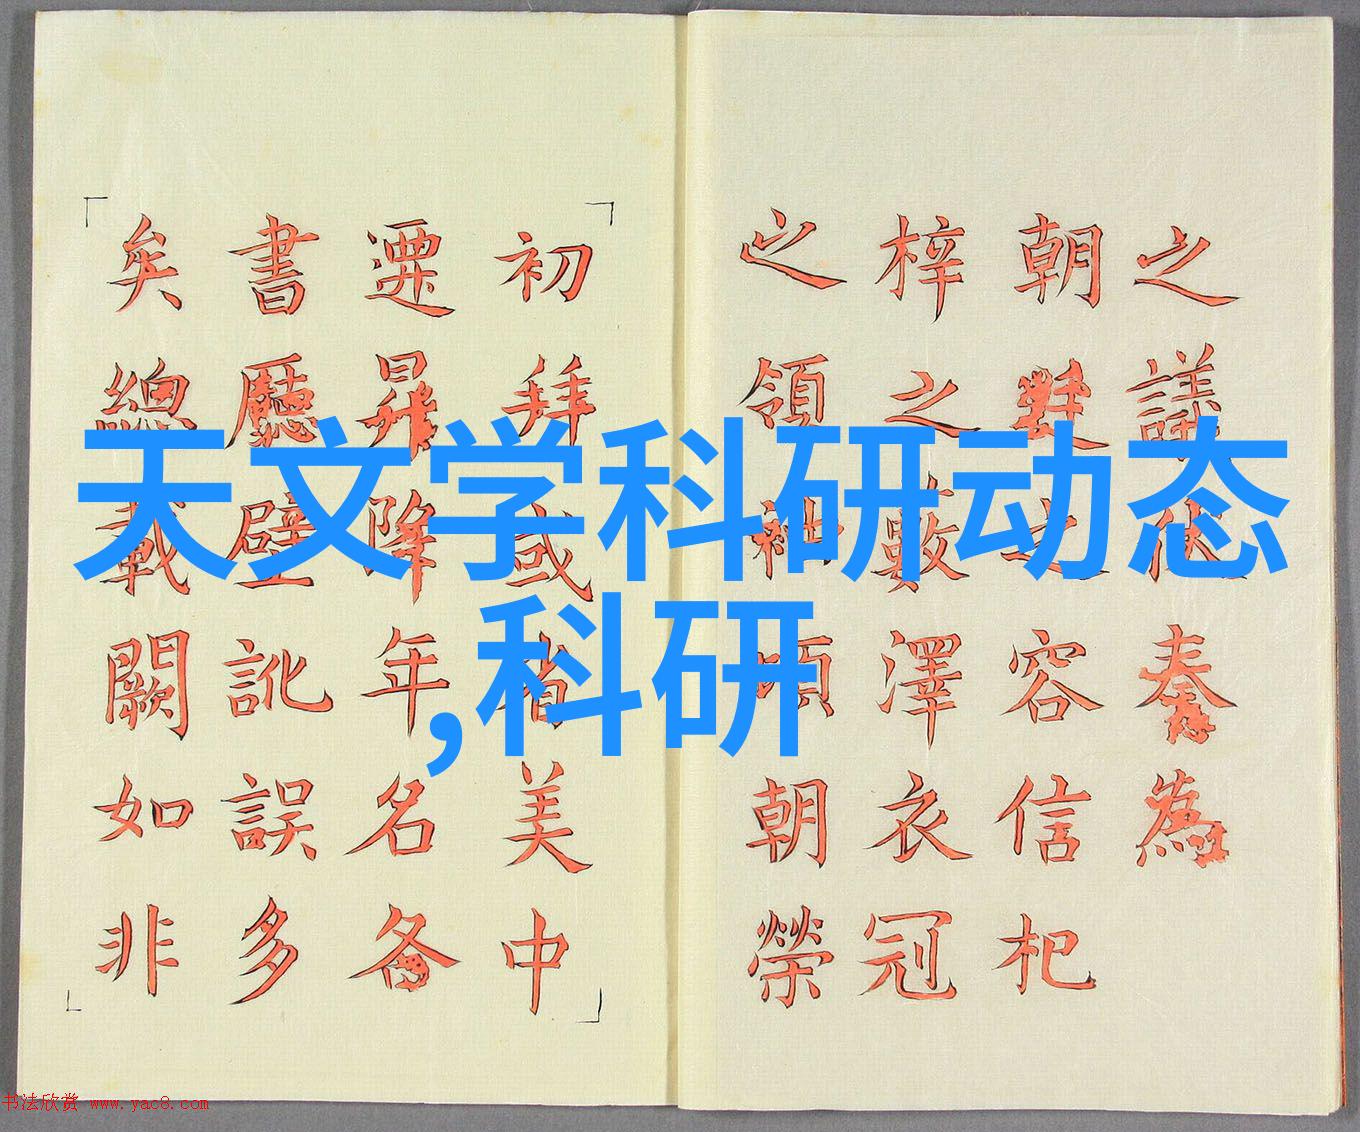 天文学科研动态
,科研
之議伏奏為
朝之容信杞
梓之藪澤衣冠
之領袖頃朝榮
初拜或省美中
遷昇降年名各
書廳壁訛誤多
矣總載闕如非
书法欣赏 www.yac8.com